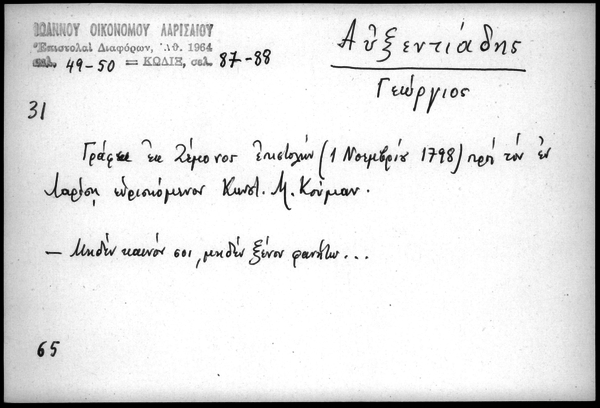 ΙΩΑΝΝΟΥ ΟΙΚΟΝΟΜΟΥ ΛΑΡΙΣΑΙΟΥ
Ἐπιστολαὶ Διαφόρων, Ἀθ. 1964
σελ. 49-50 = ΚΩΔΙΞ, σελ. 87-88
Αὐξεντιάδης
Γεώργιος
31
Γράφει ἐκ Ζέμονος ἐπιστολήν (1 Νοεμβρίου 1798) πρὸς τὸν ἐν
Λαρίσῃ εὑρισκόμενον Κωνστ. Μ. Κούμαν.
— Μηδὲν καινόν σοι, μηδὲν ξένον φανήτω...
65